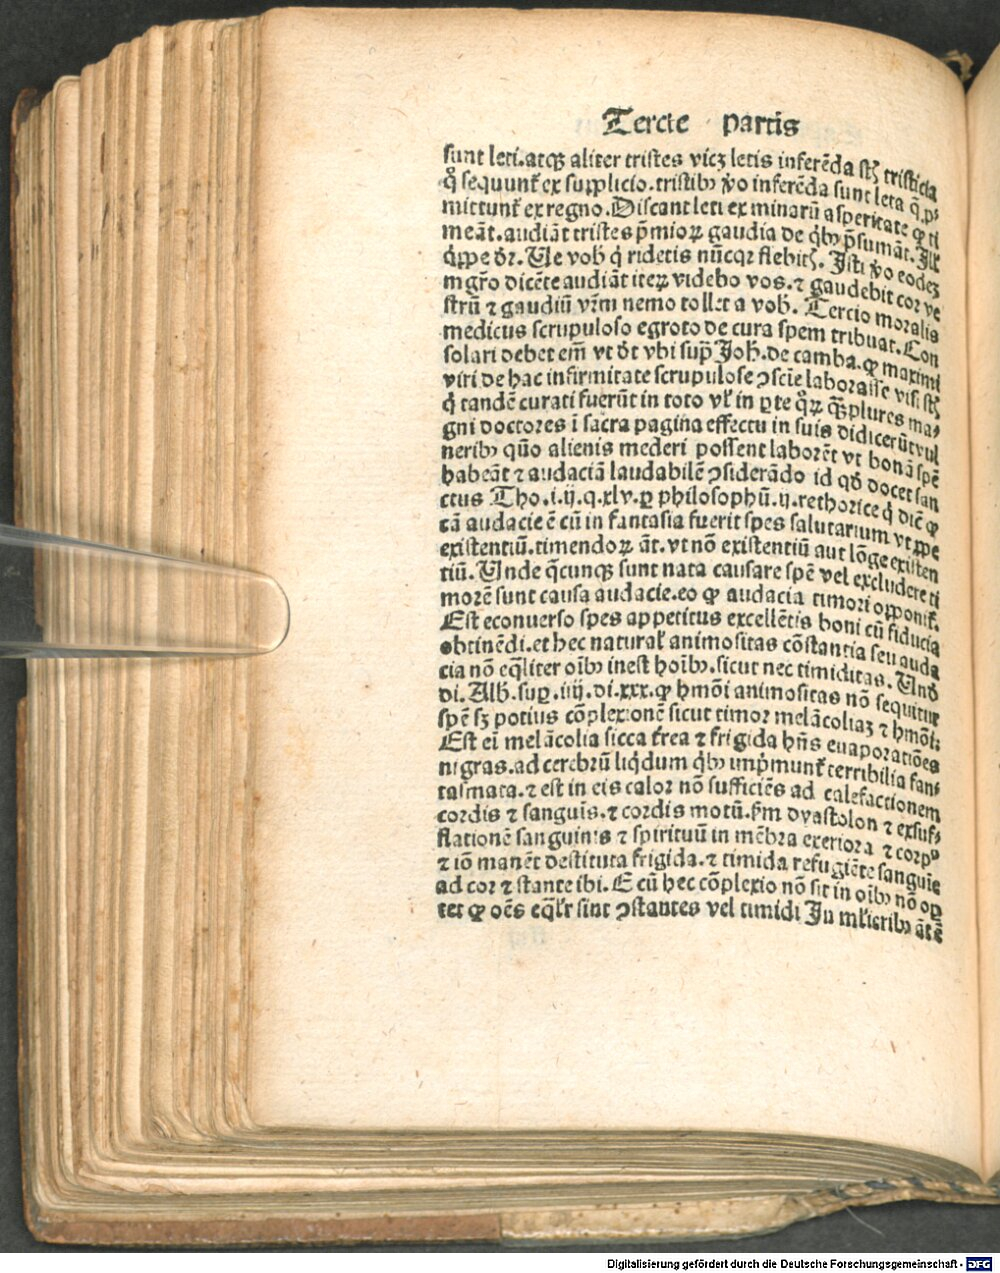 Tercie partis
sunt leti.atqꝫ aliter tristes vicꝫ letis inferēda st̄ tristicia
q̄ sequunt᷑ ex supplicio.tristibꝰ ꝟo inferēda sunt leta q̄ ꝓ⸗
mittunt᷑ ex regno.Discant leti ex minarū asperitate ꝙ ti
meāt.audiāt tristes p̄mioꝝ gaudia de q̓bꝰ p̄sumāt. Ill̓
q̓ppe dr̄.Ve vob̓ q̓ ridetis nūcqꝛ flebit̓. Isti ꝟo eodeꝫ
mgr̄o dicēte audiāt iteꝝ videbo vos.⁊ gaudebit cor ve
strū ⁊ gaudiū vr̄m nemo tollet a vob̓. Tercio moralis
medicus scrupuloso egroto de cura spem tribuat. Con
solari debet em̄ vt dt̄ vbi sup̄ Joh̓.de camba.ꝙ maximi
viri de hac infirmitate scrupulose ꝯscīe laborasse visi st̄
q̓ tandē curati fuerūt in toto vl̓ in ꝑte q̊ꝝ qꝫplures ma⸗
gni doctores ī sacra pagina effectu in suis didicerūt vul
neribꝰ quō alienis mederi possent laborēt vt bonā spē
habeāt ⁊ audaciā laudabilē ꝯsiderādo id qd̓ docet san
ctus Tho.i.ij.q.xlv.ꝑ philosophū.ij.rethorice q̓ dic̄ ꝙ
tā audacie ē cū in fantasia fuerit spes salutarium vt ꝓpe
existentiū.timendoꝝ āt.vt nō existentiū aut lōge existen
tiū.Vnde q̄cunqꝫ sunt nata causare spē vel excludere ti
morē sunt causa audacie.eo ꝙ audacia timori opponit᷑.
Est econuerso spes appetitus excellētis boni cū fiducia
obtinēdi.et hec natural̓ animositas cōstantia seu auda
cia nō eq̄liter oībꝰ inest hoībꝰ.sicut nec timiditas. Vnd̓
di. Alb̓.suꝑ.iiij.di.xxx.ꝙ hmōi animositas nō sequitur
spē sꝫ potius cōplexionē sicut timor melācoliaꝫ ⁊ hmōi:
Est ei̅ melācolia sicca t̓rea ⁊ frigida hn̄s euaporatiōes
nigras.ad cerebrū liq̓dum q̓bꝰ imp̓munt᷑ terribilia fan⸗
tasmata.⁊ est in eis calor nō sufficiēs ad calefactionem
cordis ⁊ sanguīs.⁊ cordis motū.ẜm dyastolon ⁊ exsuf⸗
flationē sanguinis ⁊ spirituū in mēbra exeriora ⁊ corpꝰ
⁊ iō manēt destituta frigida.⁊ timida refugiēte sanguīe
ad cor ⁊ stante ibi. E cū hec cōplexio nō sit in oībꝰ nō oꝑ
tet ꝙ oēs eq̄l̓r sint ꝯstantes vel timidi In ml̓ieribꝰ āt ē
Digitalisierung gefördert durch die Deutsche Forschungsgemeinschaft - DFG